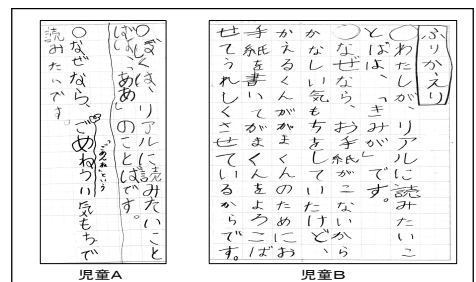 ○ぼくは、リアルに読みたいこと
ばは、「ああ」のことばです。
○なぜなら、ごめねうい気もちで
「ごめんね」という
読みたいです。
児童A
ふりかえり
○わたしが、リアルに読みたいこ
とばは、「きみが」です。
○なぜなら、お手紙がこないから
かなしい気もちをしていたけど、
かえるくんががまくんのためにお
手紙を書いてがまくんをよろこば
せてうれしくさせているからです。
児童B